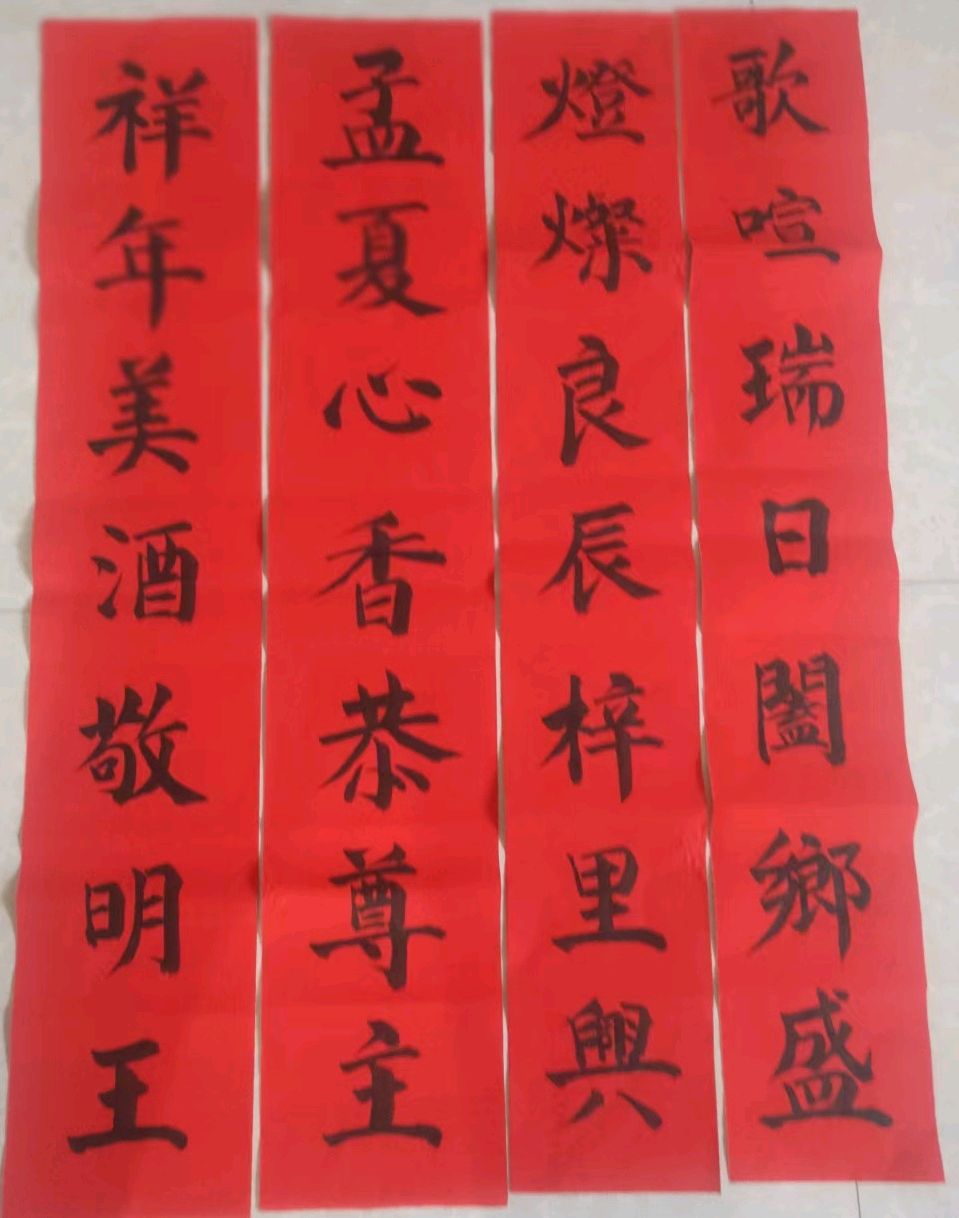 歌喧瑞日闔鄉盛
燈燦良辰梓里興
孟夏心香恭尊主
祥年美酒敬明王